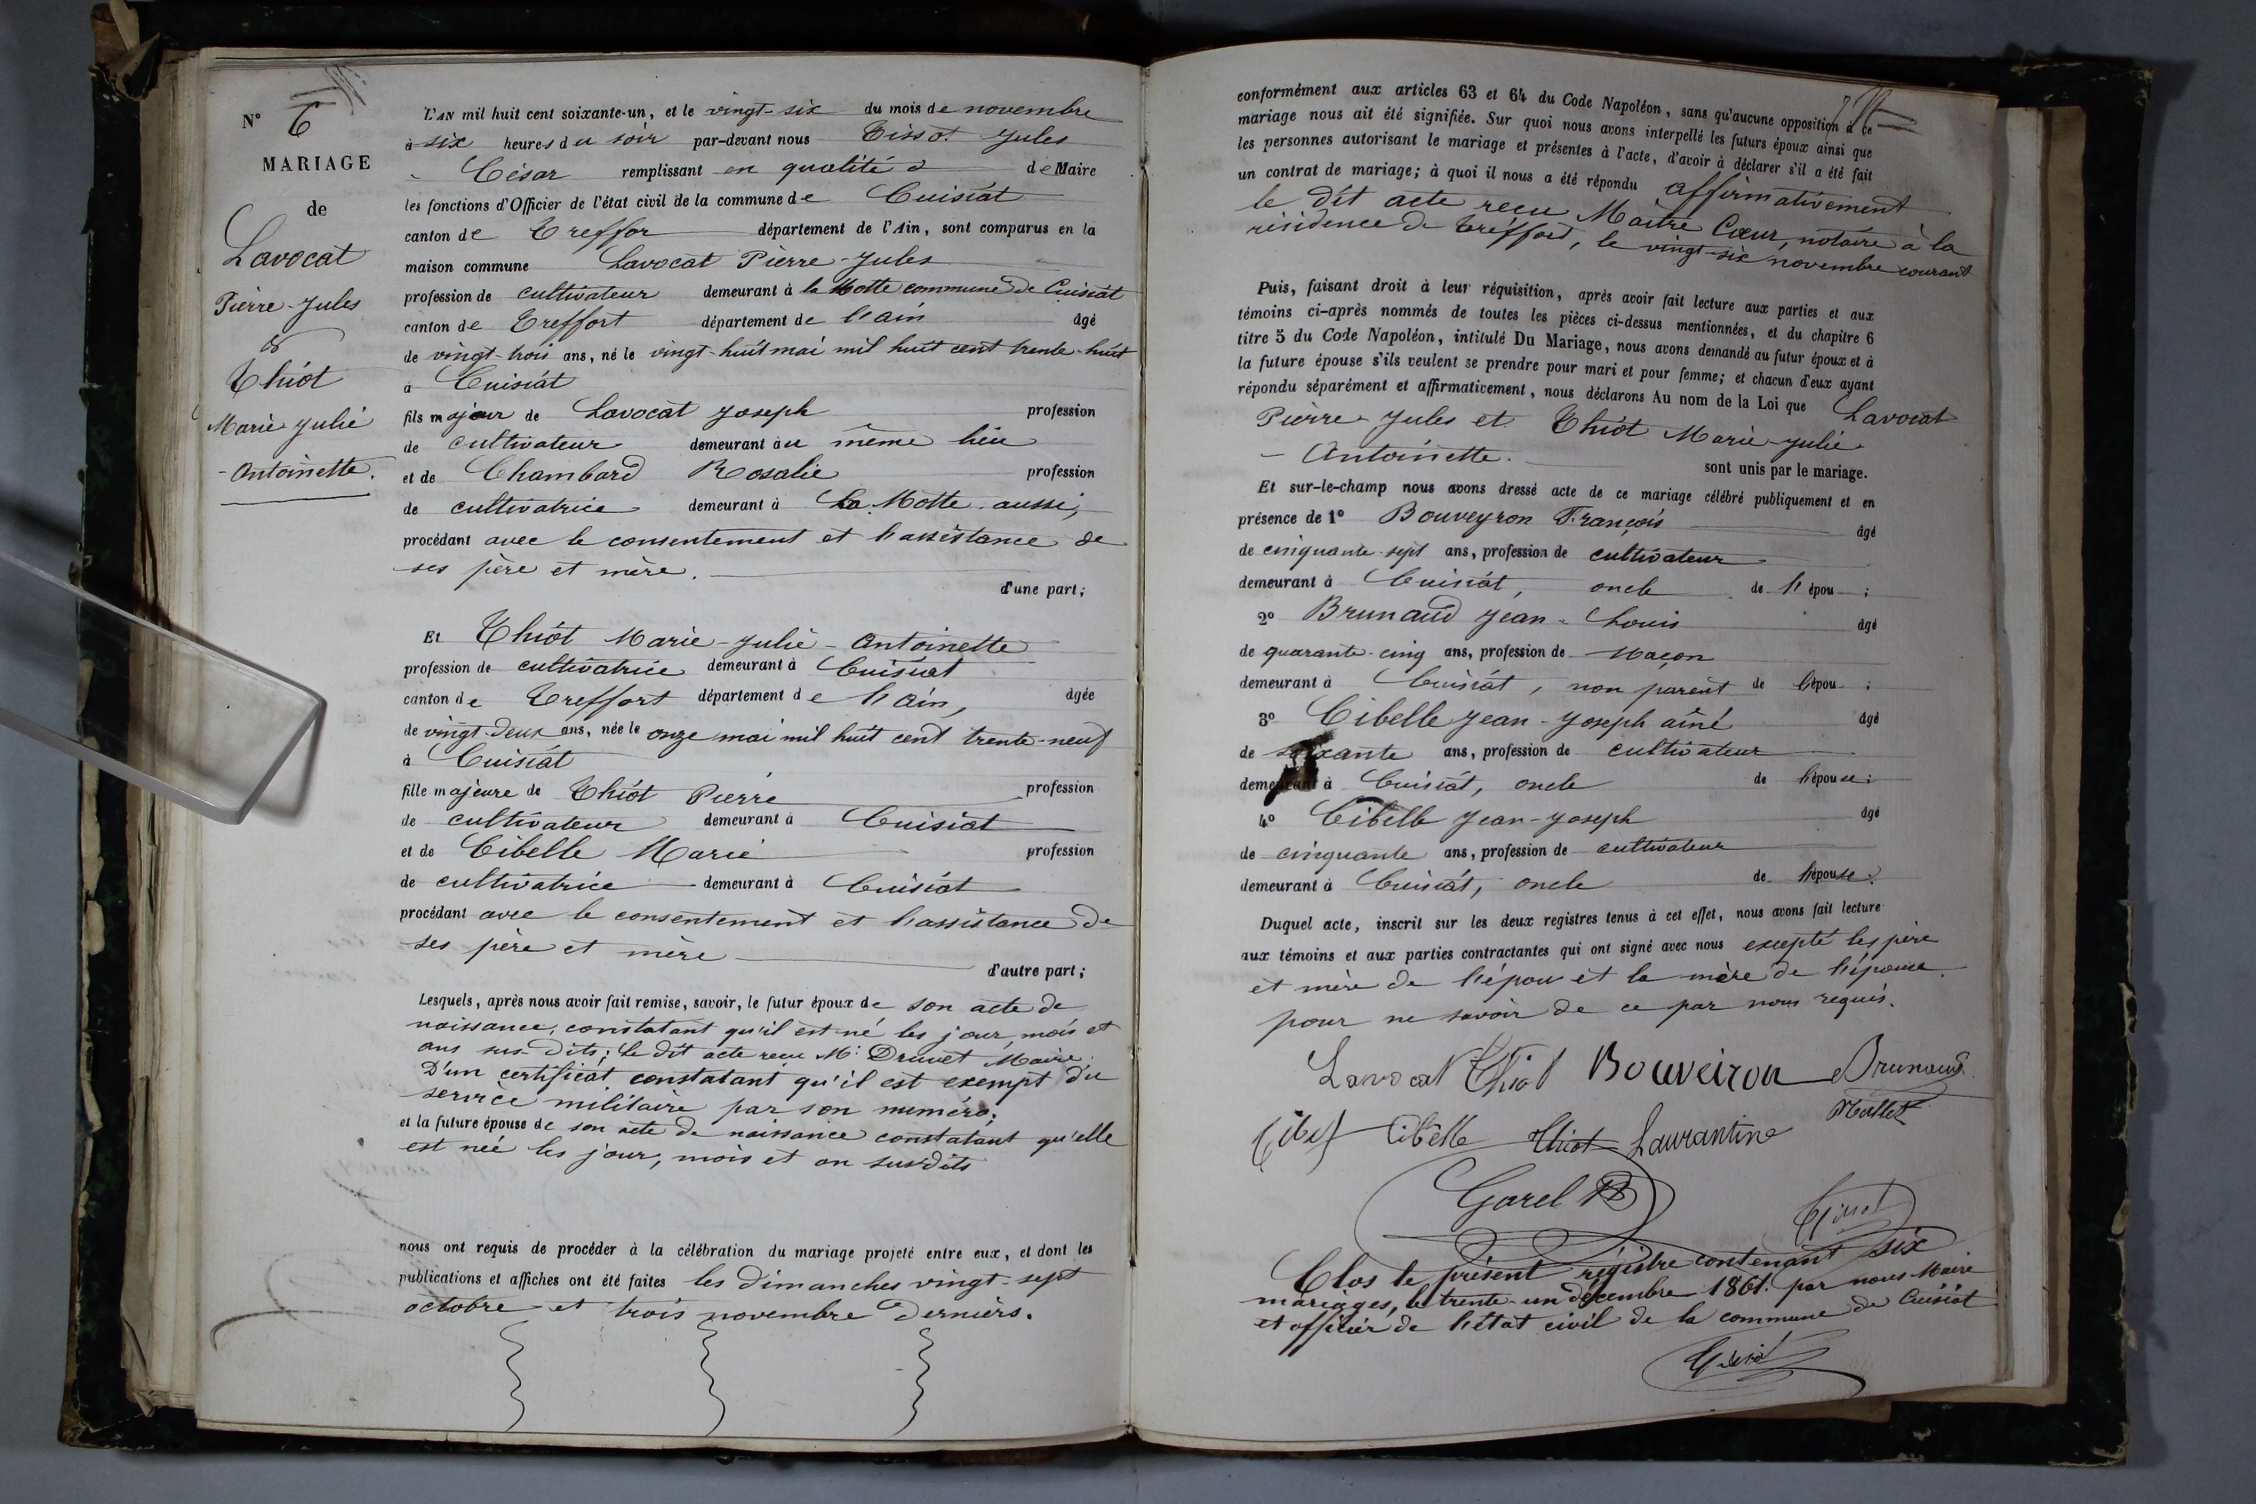 N° 6
MARIAGE
de
Lavocat
Pierre-Jules
&
Thiot
Marie Julie
-Antoinette.
L'AN mil huit cent soixante-un, et le vingt-six du mois de novembre
à six heures du soir par-devant nous Tissot Jules
- César remplissant en qualité de Maire
les fonctions d'Officier de l'état civil de la commune de Cuisiat
canton de Treffor département de l'Ain, sont comparus en la
maison commune Lavocat Pierre-Jules
profession de cultivateur demeurant à la Motte commune de Cuisiat
canton de Treffort département de l'ain âgé
de vingt-trois ans, né le vingt-huit mai mil huit cent trente-huit
à Cuisiat
fils majeur de Lavocat Joseph profession
de cultivateur demeurant au même lieu
et de Chambard Rosalie profession
de cultivatrice demeurant à La Motte aussi,
procédant avec le consentement et l'assistance de
ses père et mère.
d'une part;
Et Thiot Marie-Julie-Antoinette
profession de cultivatrice demeurant à Cuisiat
canton de Treffort département de l'ain, âgée
de vingt-deux ans, née le onze mai mil huit cent trente-neuf
à Cuisiat
fille majeure de Thiot Pierre profession
de cultivateur demeurant à Cuisiat
et de Cibelle Marie profession
de cultivatrice demeurant à Cuisiat
procédant avec le consentement et l'assistance de
ses père et mère
d'autre part;
Lesquels, après nous avoir fait remise, savoir, le futur époux de son acte de
naissance, constatant qu'il est né les jour, mois et
ans sus-dits; le dit acte reçu Mr Druvet Maire.
D'un certificat constatant qu'il est exempt du
service militaire par son numéro;
et la future épouse de son acte de naissance constatant qu'elle
est née les jour, mois et an susdits
nous ont requis de procéder à la célébration du mariage projeté entre eux, et dont les
publications et affiches ont été faites les dimanches vingt-sept
octobre et trois novembre derniers.
conformément aux articles 63 et 64 du Code Napoléon, sans qu'aucune opposition à ce
mariage nous ait été signifiée. Sur quoi nous avons interpellé les futurs époux ainsi que
les personnes autorisant le mariage et présentes à l'acte, d'avoir à déclarer s'il a été fait
un contrat de mariage; à quoi il nous a été répondu affirmativement
le dit acte reçu Maitre Cœur, notaire à la
résidence de Treffort, le vingt-six novembre courant
Puis, faisant droit à leur réquisition, après avoir fait lecture aux parties et aux
témoins ci-après nommés de toutes les pièces ci-dessus mentionnées, et du chapitre 6
titre 5 du Code Napoléon, intitulé Du Mariage, nous avons demandé au futur époux et à
la future épouse s'ils veulent se prendre pour mari et pour femme; et chacun d'eux ayant
répondu séparément et affirmativement, nous déclarons Au nom de la Loi que Lavocat
Pierre-Jules et Thiot Marie-Julie
- Antoinette.
sont unis par le mariage.
Et sur-le-champ nous avons dressé acte de ce mariage célébré publiquement et en
présence de 1° Bouveyron François âgé
de cinquante-sept ans, profession de cultivateur
demeurant à Cuisiat, oncle de l'épou ;
2° Brunaud Jean-Louis âgé
de quarante-cinq ans, profession de Maçon
demeurant à Cuisiat, non parent de l'épou ;
3° Cibelle Jean-Joseph aîné âgé
de soixante ans, profession de cultivateur
demeurant à Cuisiat, oncle de l'épouse;
4° Cibelle Jean-Joseph âgé
de cinquante ans, profession de cultivateur
demeurant à Cuisiat, oncle de l'épouse.
Duquel acte, inscrit sur les deux registres tenus à cet effet, nous avons fait lecture
aux témoins et aux parties contractantes qui ont signé avec nous excepté les père
et mère de l'épou et la mère de l'épouse.
pour ne savoir de ce par nous requis.
Lavocat Thiot Bouveiron Brunaud
Cibelle Thiot Laurantine Mallet
Garel
Tissot
Clos le présent régistre contenant six
mariages, le trente-un décembre 1861. par nous Maire
et officier de l'état civil de la commune de Cuisiat
Tissot